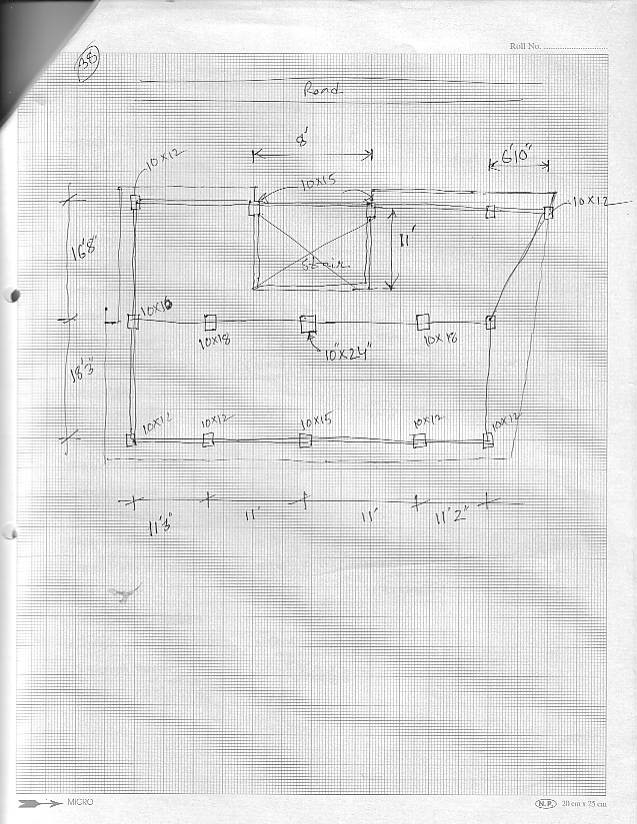 Roll No.
38
Road
8'
6'10"
10X12
10X15
10X12
11'
16'8"
Stair
10X16
10X18
10"X24"
10X18
18'3"
10X12
10X12
10X15
10X12
10X12
11'3"
11'
11'
11'2"
MICRO
N.P. 20 cm x 25 cm